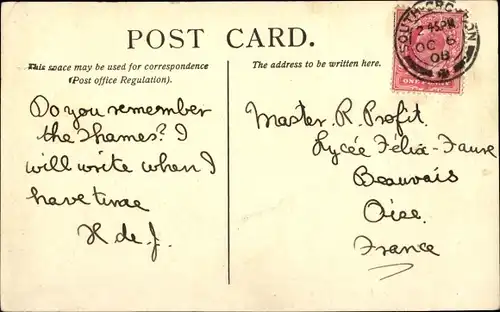 POST CARD.
This space may be used for correspondence
(Post office Regulation).
The address to be written here.
SOUTH CROYDON
2 45PM
OC 6
06
ONE PENNY
Do you remember
the Thames? I
will write when I
have time
H de J.
Master. R. Profit.
Lycée Félix-Faure
Beauvais
Oise.
France